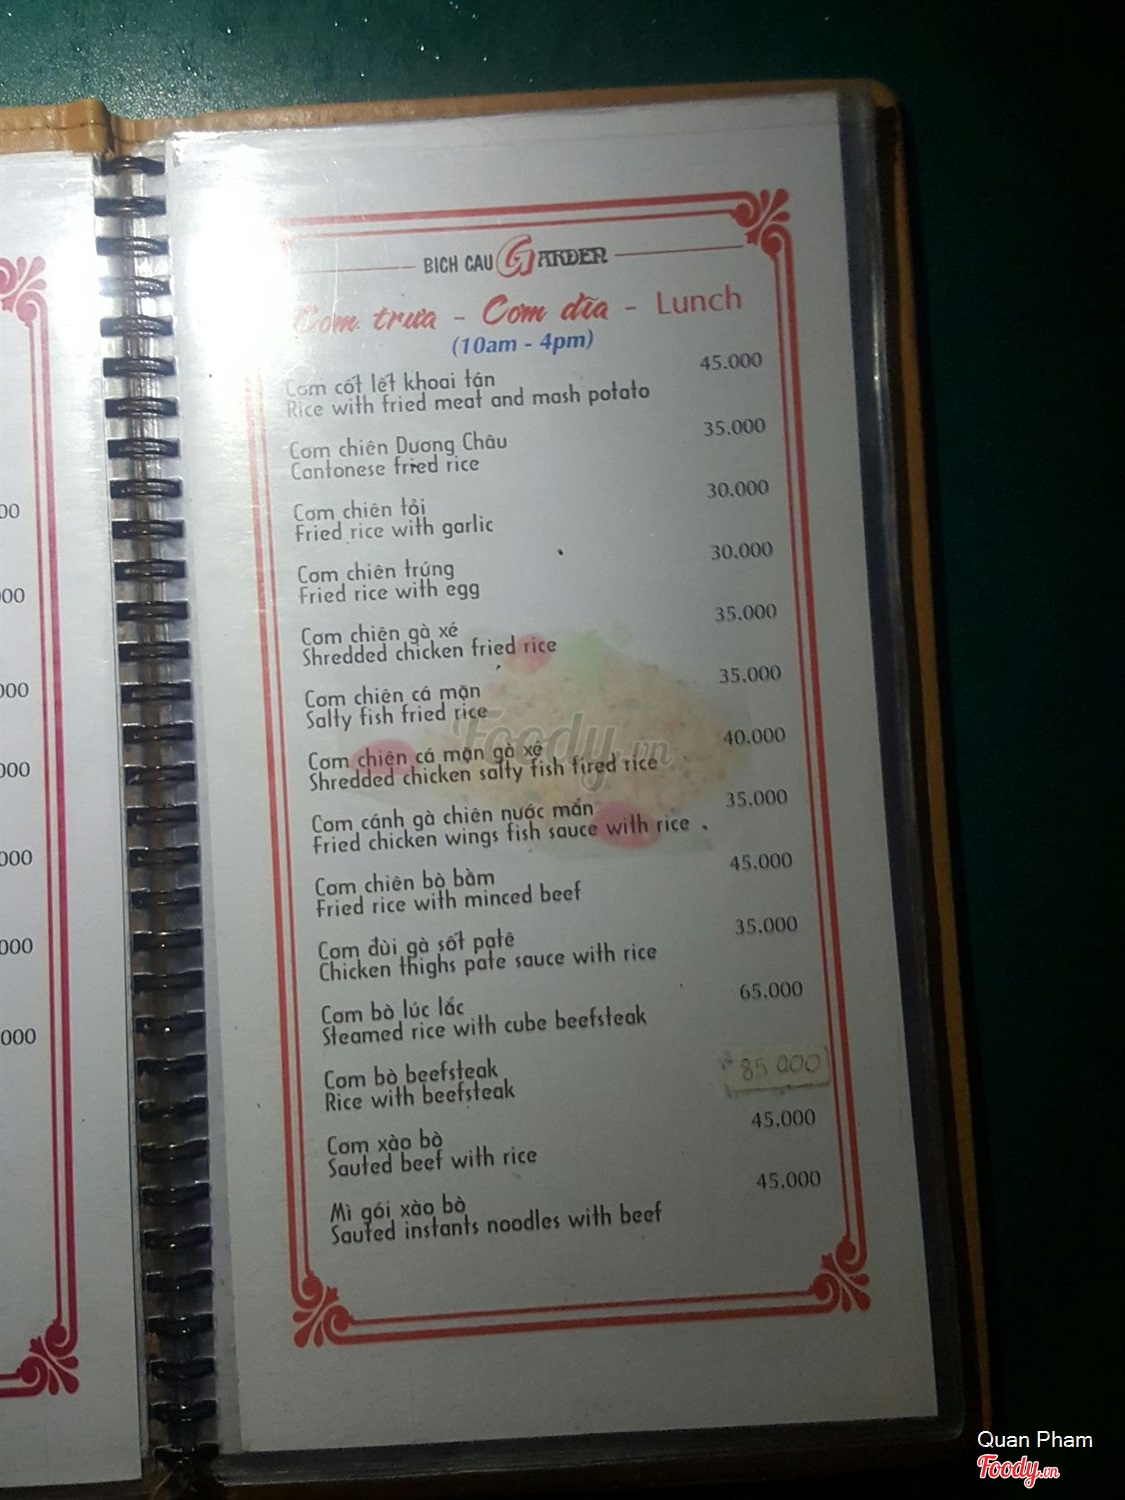 BICH CAU GARDEN
Cơm trưa - Cơm dĩa - Lunch
(10am - 4pm)
Cơm cốt lết khoai tán 45.000
Rice with fried meat and mash potato
Cơm chiên Dương Châu 35.000
Cantonese fried rice
Cơm chiên tỏi 30.000
Fried rice with garlic
Cơm chiên trứng 30.000
Fried rice with egg
Cơm chiên gà xé 35.000
Shredded chicken fried rice
Cơm chiên cá mặn 35.000
Salty fish fried rice
Cơm chiên cá mặn gà xé 40.000
Shredded chicken salty fish fired rice
Cơm cánh gà chiên nước mắn 35.000
Fried chicken wings fish sauce with rice .
Cơm chiên bò bằm 45.000
Fried rice with minced beef
Cơm đùi gà sốt patê 35.000
Chicken thighs pate sauce with rice
Cơm bò lúc lắc 65.000
Steamed rice with cube beefsteak
Cơm bò beefsteak 85 000
Rice with beefsteak
Cơm xào bò 45.000
Sauted beef with rice
Mì gói xào bò 45.000
Sauted instants noodles with beef
00
000
000
000
000
000
000
Foody.vn
Quan Pham
Foody.vn